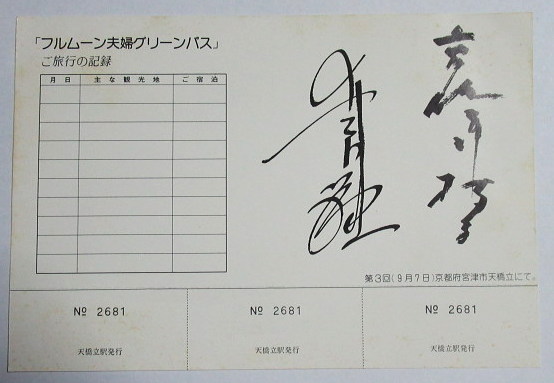 「フルムーン夫婦グリーンパス」
ご旅行の記録
月日 主な観光地 ご宿泊
第3回(9月7日)京都府宮津市天橋立にて。
№ 2681 № 2681 № 2681
天橋立駅発行 天橋立駅発行 天橋立駅発行